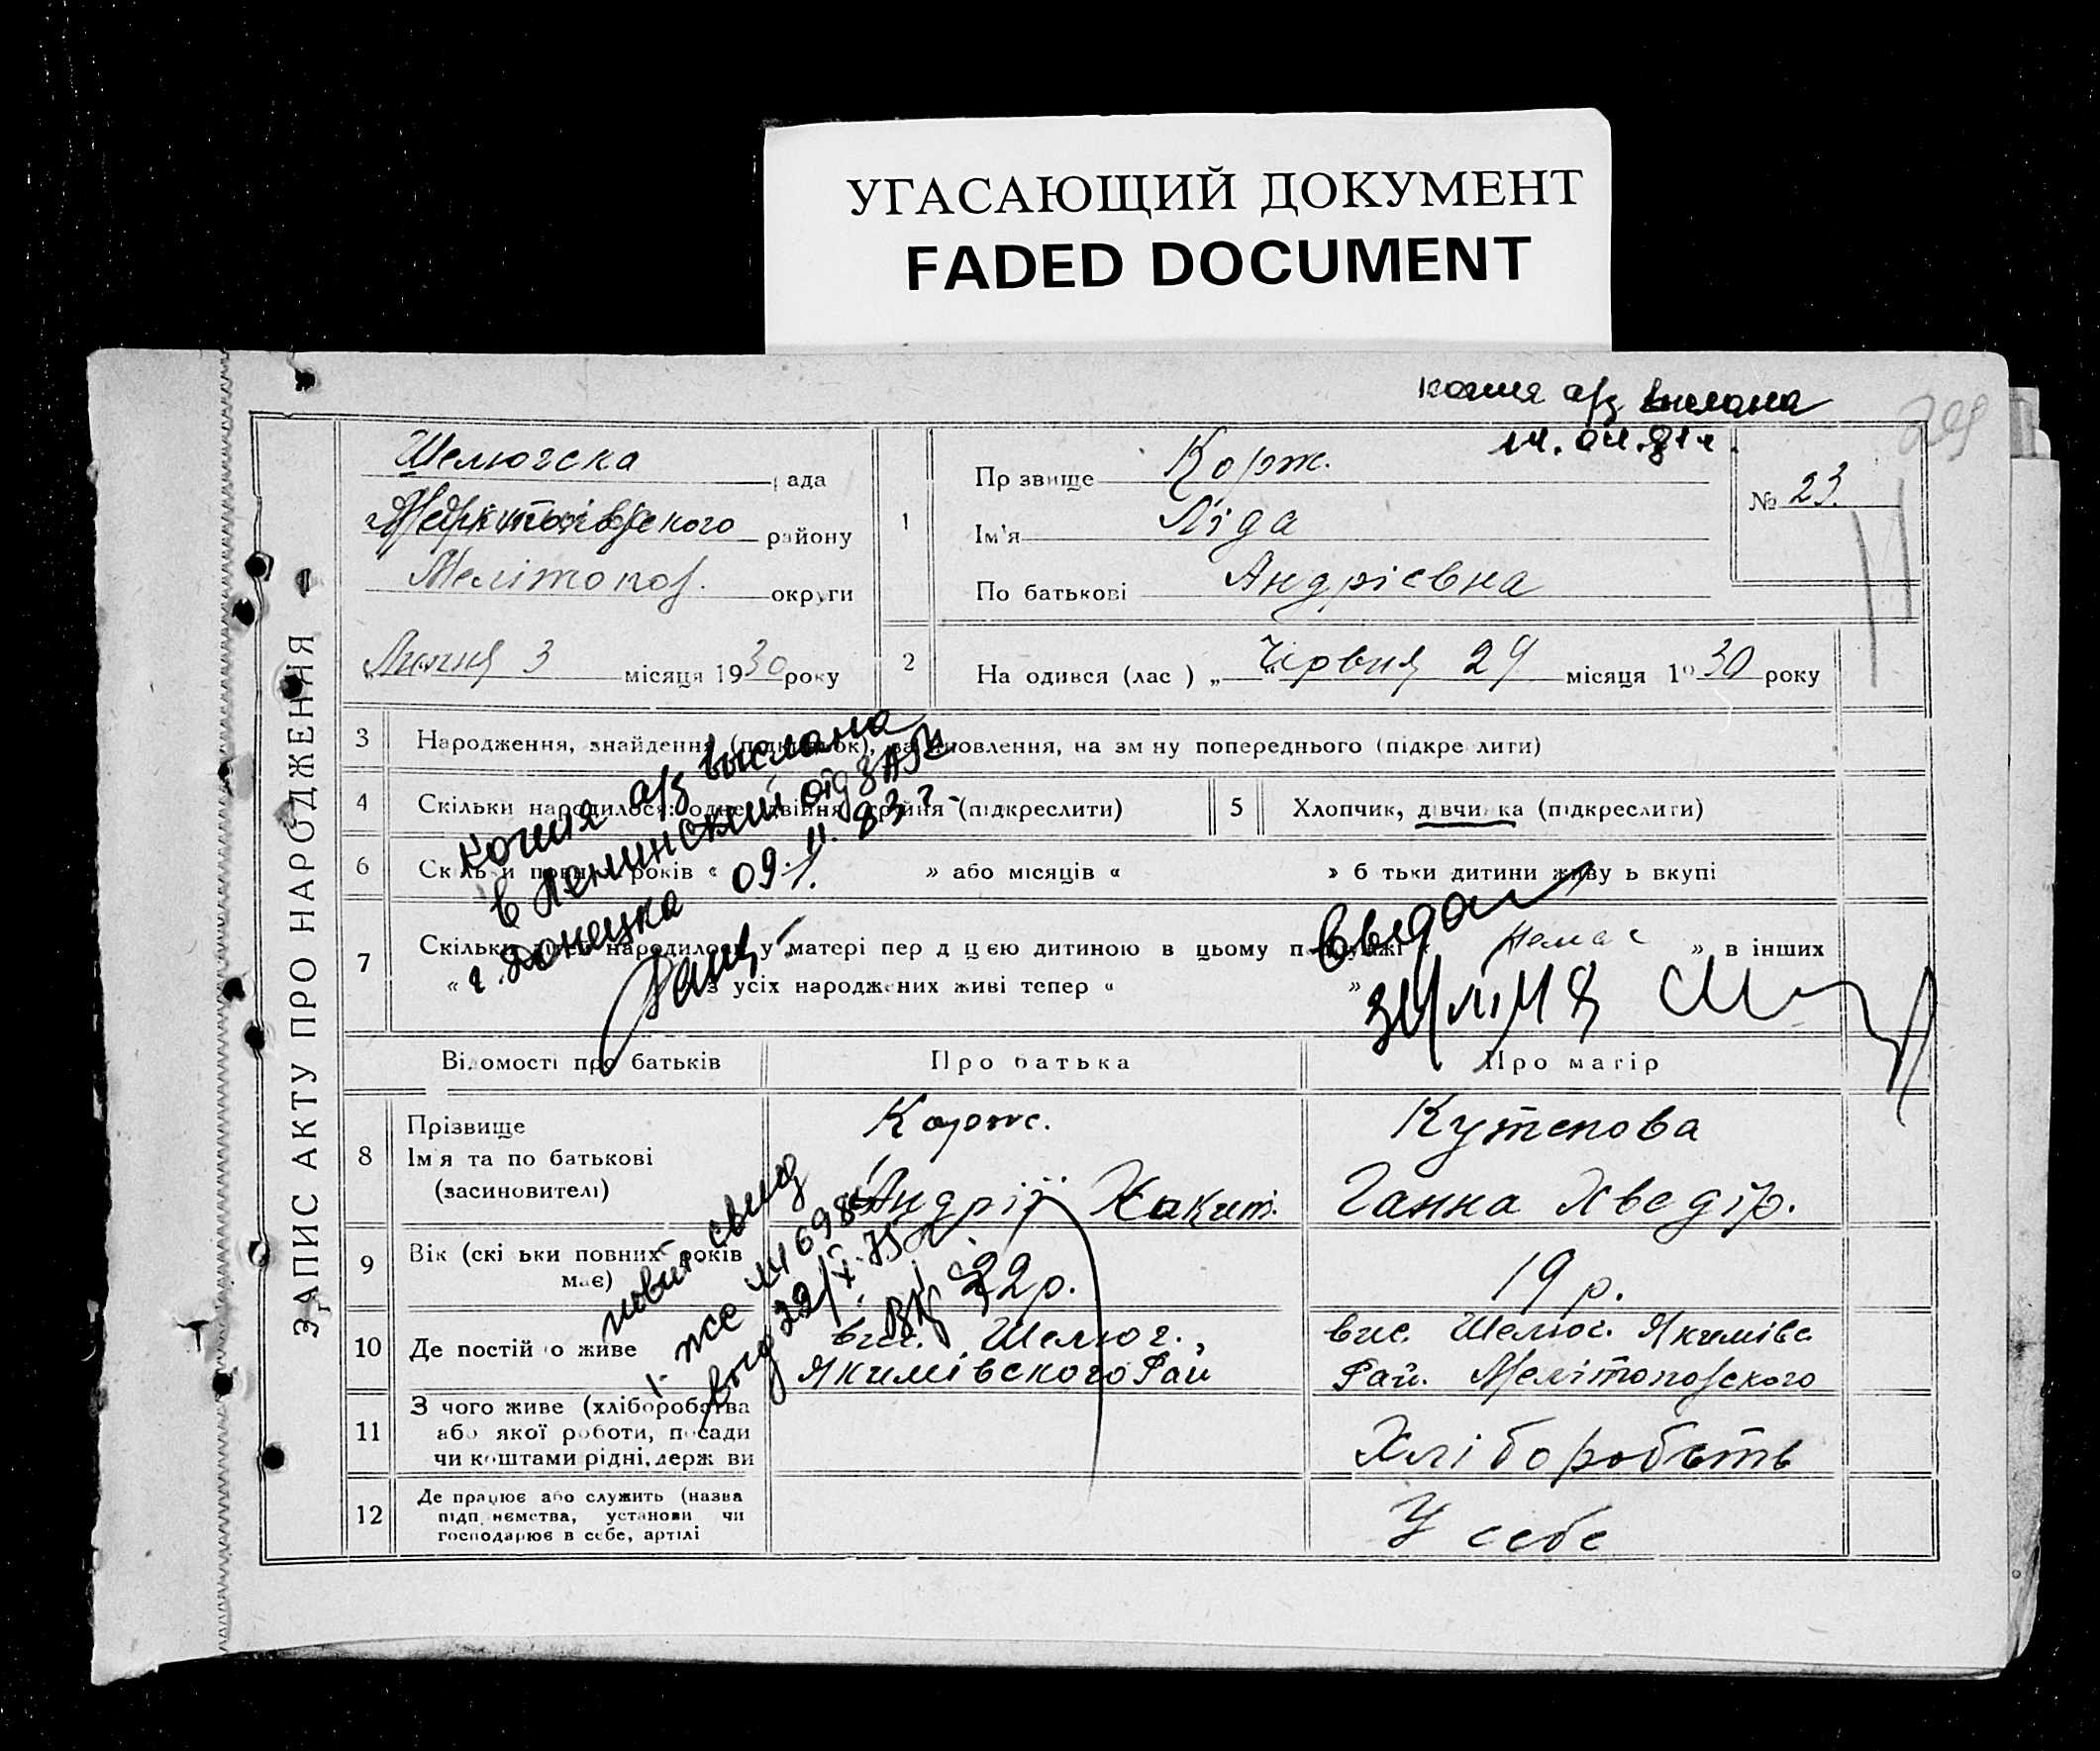 УГАСАЮЩИЙ ДОКУМЕНТ
FADED DOCUMENT
копия а/з выслана
14.04.81г.
ЗАПИС АКТУ ПРО НАРОДЖЕННЯ
Шелюгска рада
району
Мелітопол. округи
Липня 3 місяця 1930 року
1
Прізвище Корж.
Ім'я Ліда
По батькові Андрієвна
№ 23.
2
На одився (лас ) „ Червня 29 місяця 1930 року
3 Народження, знайдення (підкидьок), на зм ну попереднього (підкре лити)
4 Скільки народилося: одне, двійня, трійня (підкреслити)
5 Хлопчик, дівчинка (підкреслити)
6 Скільки повних років « » або місяців « » б тьки дитини живу ь вкупі
7 Скільки дітей народилося у матері пер д ц єю дитиною в цьому « немає » в інших
« з усіх народжених живі тепер « »
копия а/з выслана
в Ленинский отд ЗАГС
г. Донецка 09.11.83г.
Відомості про батьків Про батька Про матір
8 Прізвище
Ім'я та по батькові
(засиновителі)
Корж.
Андрій
Кутепова
Ганна Хведір.
9 Вік (скі ьки повних років
має)
22 р.
19 р.
10 Де постій о живе
вис. Шелюг.,
Якимівского Рай
вис. Шелюг. Якимівс.
Рай. Мелітопольского
11 З чого живе (хліборобства
або якої роботи, посади
чи коштами рідні, держ ви
Хліборобств
12 Де працює або служить (назва
підп ємства, установи чи
господарює в себе, артілі
У себе